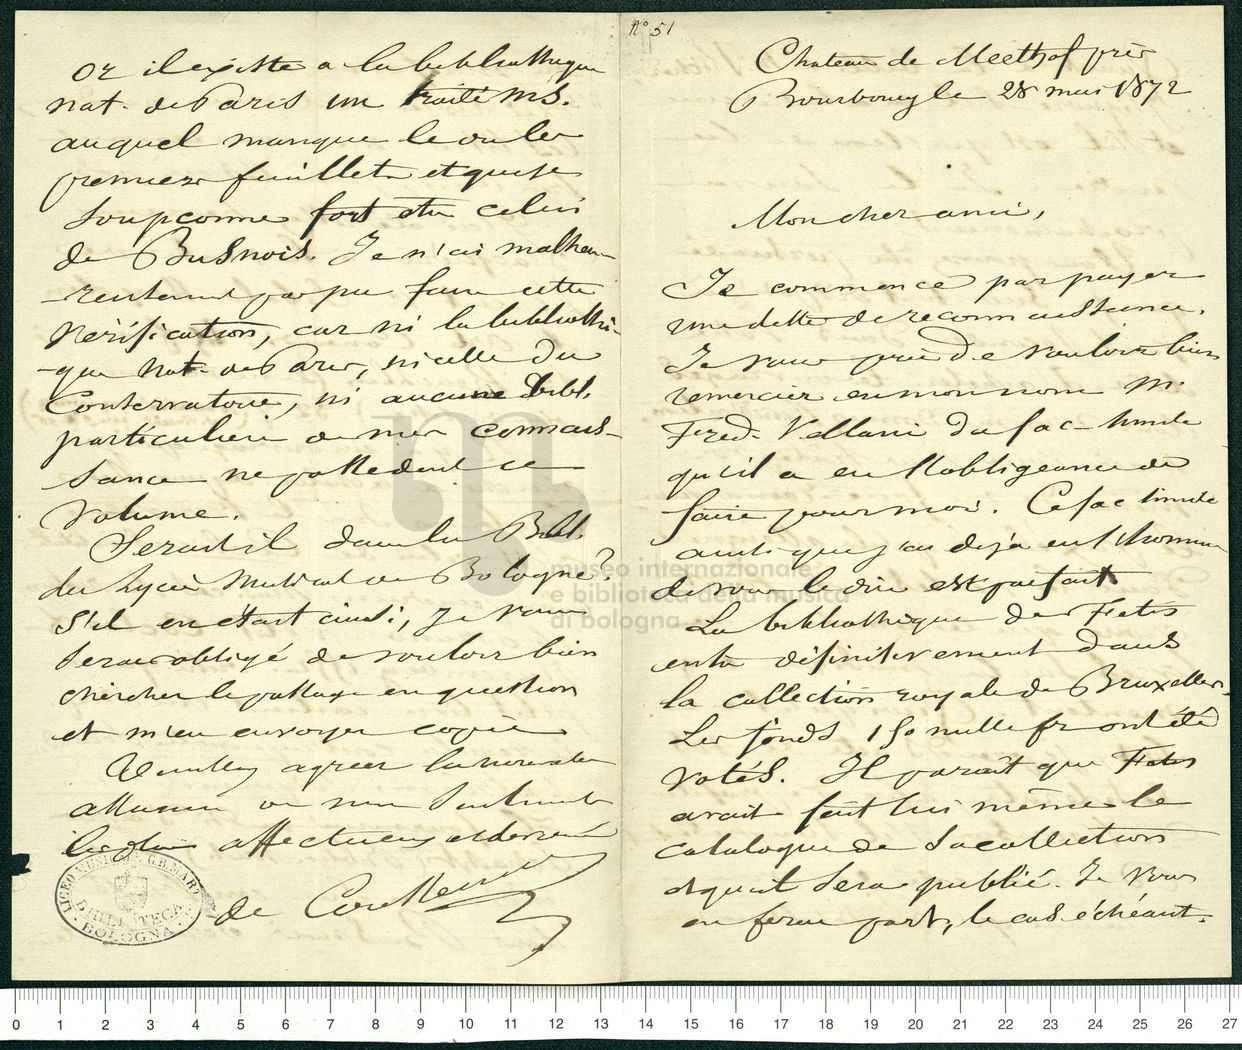 N° 51
Chateau de Meethof près
Bourbourg le 28 mai 1872
Mon cher ami,
Je commence par payer
une dette de reconnaissance.
Je vous prie de vouloir bien
remercier en mon nom M.
Fred. Vellani du fac-simile
qu'il a eu l'obligeance de
faire pour moi. Ce fac simile
ainsi que j'ai déjà eu l'honneur
de vous le dire est parfait
La bibliothèque de Fetis
entre définitivement dans
la collection royale de Bruxelles.
Les fonds 150 mille fr ont été
votés. Il parait que Fetis
avait fait lui même le
catalogue de sa collection
et qu'il sera publié. Je vous
en ferai part, le cas échéant.
Or il existe a la bibliothèque
nat. de Paris un traité ms.
auquel manque le ou les
premiers feuillets et que je
soupconne fort etre celui
de Busnois. Je n'ai malheu-
-reusement pas pu faire cette
vérification, car ni la bibliothè-
-que Nat. de Paris, ni celle du
Conservatoire, ni aucune bibl.
particulière de mes connais-
sance ne possedent ce
volume.
Serait il dans la Bibl.
du Lycée Musical de Bologne?
S'il en était ainsi, je vous
serais obligé de vouloir bien
chercher le passage en question
et m'en envoyer copie
Veuillez agréer la nouvelle
assurance de mes sentiments
les plus affectueux et devoués
de Coussemaker
LICEO MUSICALE G.B. MAR.
BIBLIOTECA
BOLOGNA
museo internazionale
e biblioteca della musica
di bologna
0 1 2 3 4 5 6 7 8 9 10 11 12 13 14 15 16 17 18 19 20 21 22 23 24 25 26 27